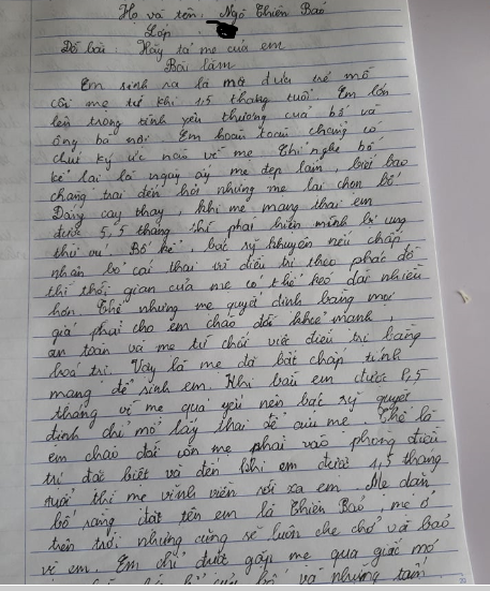 Họ và tên: Ngô Thiên Bảo
Lớp
Đề bài: Hãy tả mẹ của em
Bài làm
Em sinh ra là một đứa trẻ mồ
côi mẹ từ khi 1,5 tháng tuổi. Em lớn
lên trong tình yêu thương của bố và
ông bà nội. Em hoàn toàn chẳng có
chút ký ức nào về mẹ. Chỉ nghe bố
kể lại là ngày ấy mẹ đẹp lắm, biết bao
chàng trai đến hỏi nhưng mẹ lại chọn bố.
Đắng cay thay, khi mẹ mang thai em
được 5,5 tháng thì phát hiện mình bị ung
thư vú. Bố kể, bác sỹ khuyên nếu chấp
nhận bỏ cái thai và điều trị theo phác đồ
thì thời gian của mẹ có thể kéo dài nhiều
hơn. Thế nhưng mẹ quyết định bằng mọi
giá phải cho em chào đời khoẻ mạnh,
an toàn và mẹ từ chối việc điều trị bằng
hoá trị. Vậy là mẹ đã bất chấp tính
mạng để sinh em. Khi bầu em được 8,5
tháng vì mẹ quá yếu nên bác sỹ quyết
định chỉ mổ lấy thai để cứu mẹ. Thế là
em chào đời còn mẹ phải vào phòng điều
trị đặc biệt và đến khi em được 1,5 tháng
tuổi thì mẹ vĩnh viễn rời xa em. Mẹ dặn
bố rằng đặt tên em là Thiên Bảo, mẹ ở
trên trời nhưng cũng sẽ luôn che chở và bảo
vệ em. Em chỉ được gặp mẹ qua giấc mơ
của bố và những tấm